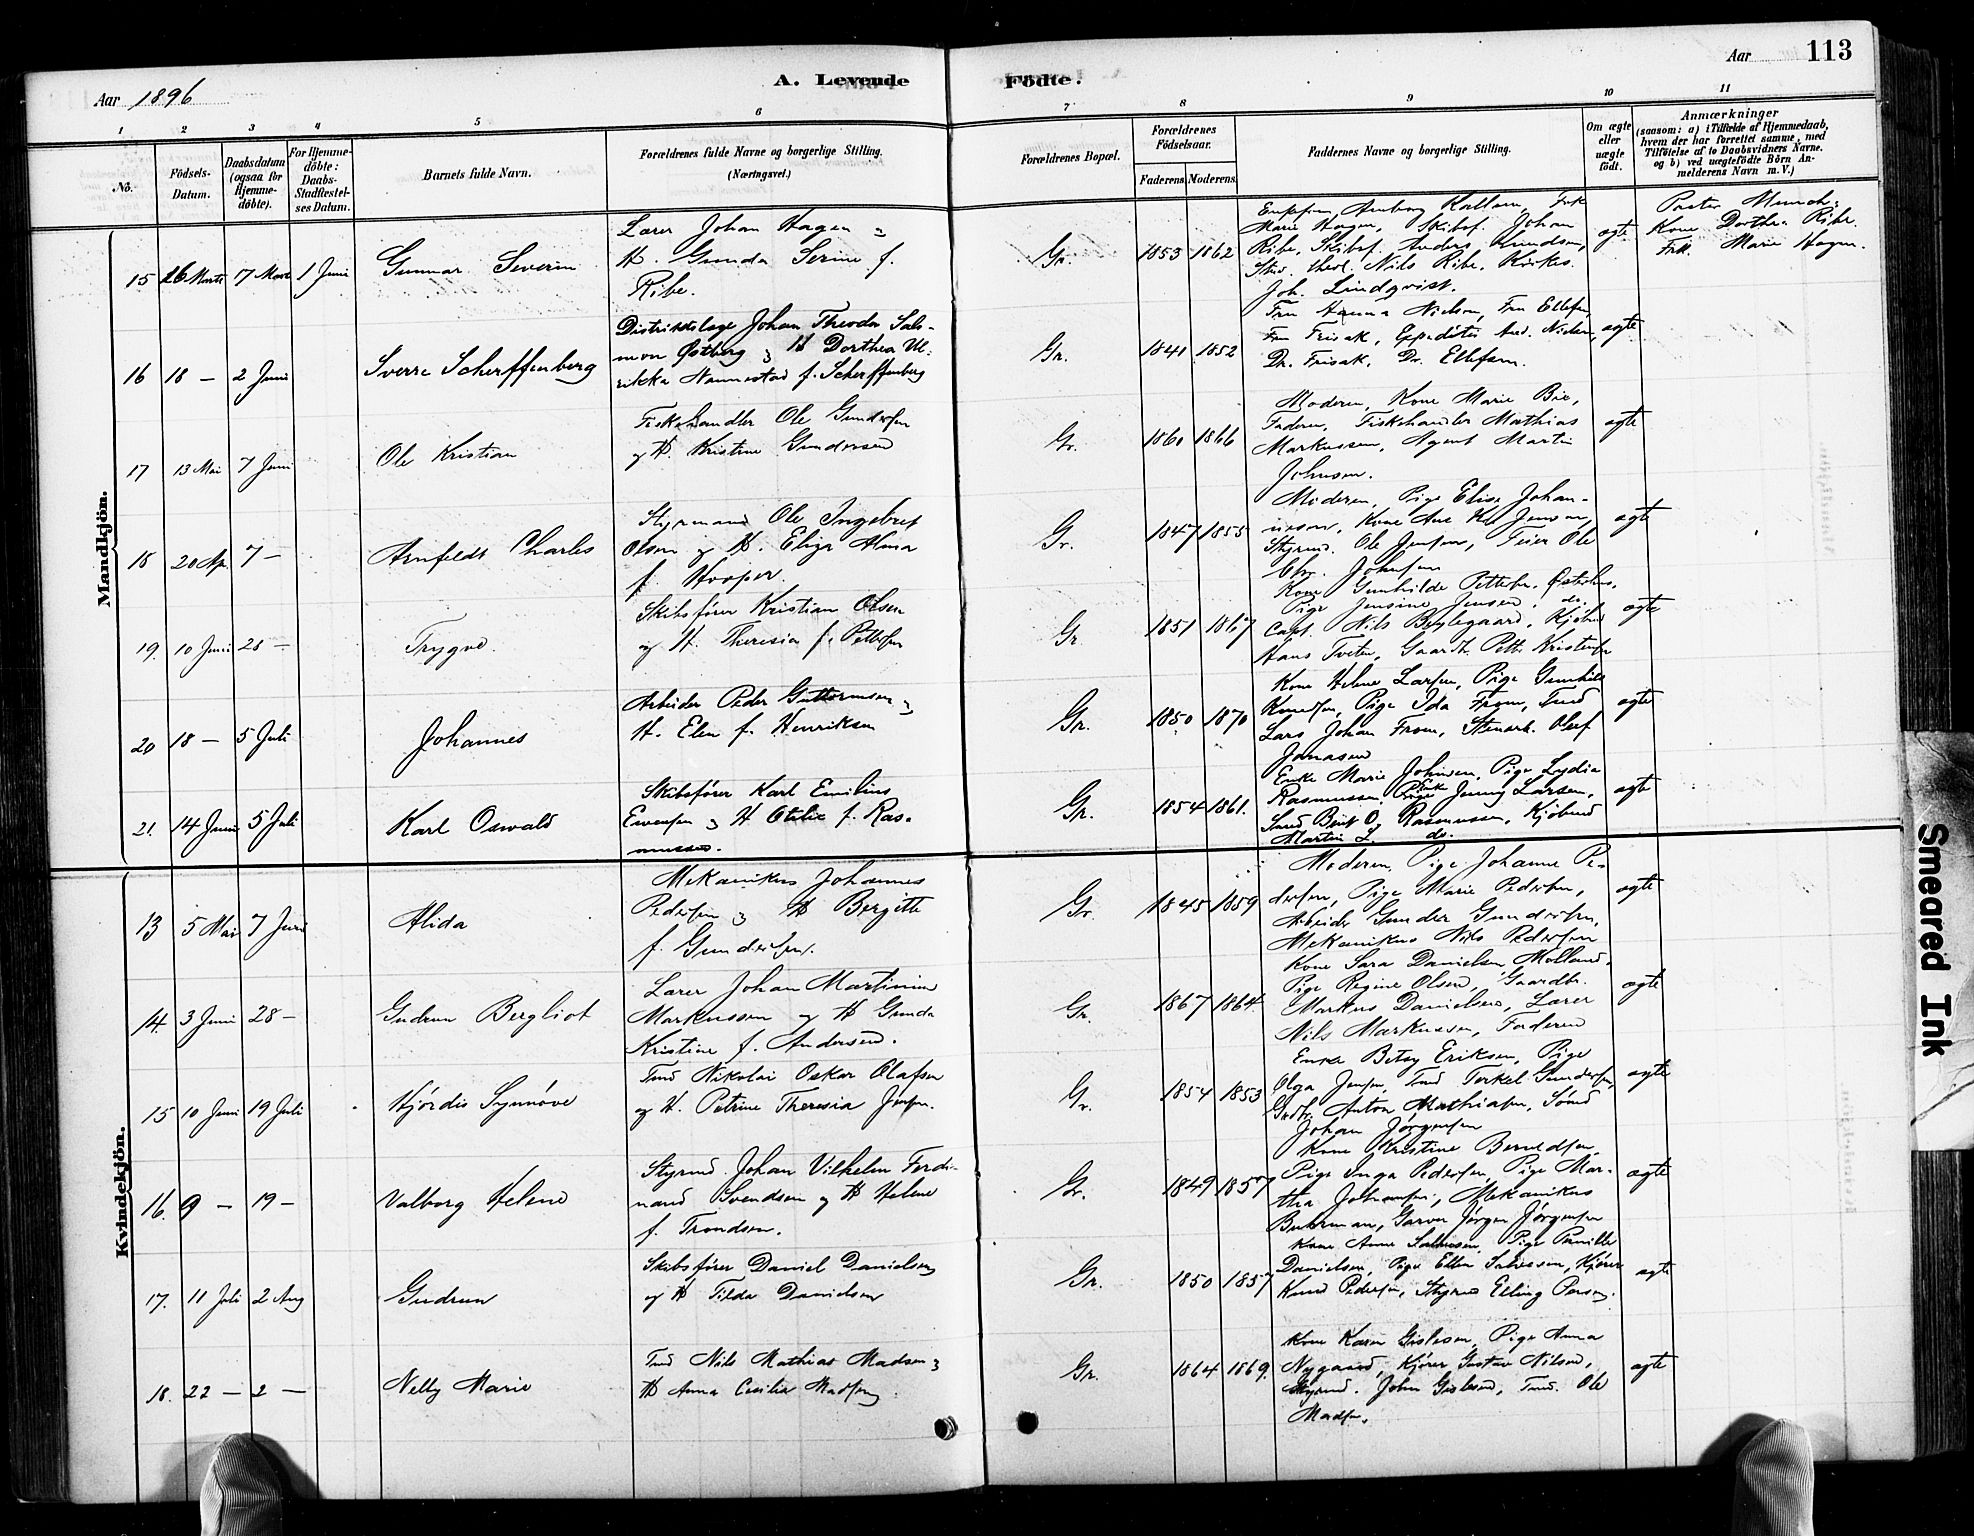 Aar 1896
A. Levende Födte.
Aar
113
1 2 3 4 5 6 7 8 9 10 11
No.
Födsels-Datum.
Daabsdatum (ogsaa for Hjemme-döbte).
For Hjemme-döbte: Daabs-Stadfæstel-ses Datum.
Barnets fulde Navn.
Forældrenes fulde Navne og borgerlige Stilling.
(Næringsvei.)
Forældrenes Bopæl.
Forældrenes Födselsaar.
Faderens. Moderens.
Faddernes Navne og borgerlige Stilling.
Om ægte eller uægte födt.
Anmærkninger
(saasom: a) i Tilfælde af Hjemmedaab, hvem der har forrettet samme, med Tilföielse af to Daabsvidners Navne. og b) ved uægtefödte Börn Anmelderens Navn m. V.)
Mandkjön.
15 26 Marts 7 1 Juni
Gunnar Severin
Lærer Johan Hagen
H. Gunda Serine f.
Ribe.
Gr. 1853 1862
Marie Hagen, Skibsf. Johan
Ribe, Skibsf. Anders Knudsen,
Stud. theol. Nils Ribe,
Joh. Lindqvist.
ægte
Pastor Munch.
Kone Dorthea Ribe
Frk. Marie Hagen.
16 18 - 2 Juni
Sverre Scherffenberg
Distriktslæge Johan Theodor Salo-
mon Østberg og H Dorthea Ul-
rikka Nannestad f. Scherffenberg
Gr. 1841 1852
Fru Hanna Nielsen, Fru Ellefsen,
Fru Frisak, Expeditør And. Nielsen,
Dr. Frisak, Dr. Ellefsen.
ægte
17 13 Mai 7 Juni
Ole Kristian
Fiskehandler Ole Gundersen
og H. Kristine Gundersen
Gr. 1860 1866
Moderen, Kone Marie Bie,
Faderen, Fiskehandler Mathias
Markussen, Agent Martin
Johnsen.
ægte
18 20 Ap. 7 -
Arnfeldt Charles
Styrmand Ole Ingebret
Olsen og H. Eliza Alma
f. Hooper.
Gr. 1847 1855
Moderen, Pige Elise Johan-
nesen, Kone Ane Jensen,
Styrmd. Ole Jensen, Feier Ole
Chr. Johnsen
ægte
19. 10 Juni 28 -
Trygve.
Skibsfører Kristian Olsen
og H. Theresia f. Pettersen
Gr. 1851 1867
Kone Gunhilde Pettersen, Østerhus,
Pige Jensine Jensen, do.
Capt. Nils Bøylegaard, Kjøbmd
Hans Tveten, Gaardb. Pett. Kristensen
ægte
20 18 - 5 Juli
Johannes
Arbeider Peder Guttormsen og
H. Elen f. Henriksen
Gr. 1850 1870
Kone Helene Larsen, Pige Gunhild
Knudsen, Pige Ida From, Tmd
Lars Johan From, Stenarb. Oluf
Jonasen
ægte
21. 14 Juni 5 Juli
Karl Oswald
Skibsfører Karl Emilius
Evensen og H Otilie f. Ras-
mussen.
Gr. 1854 1861.
Enke Marie Johnsen, Pige Lydia
Rasmussen, Pige Jenny Larsen,
Smed Bernt O. Rasmussen, Kjøbmd
Martin L. do.
ægte
Kvindekjön.
13 5 Mai 7 Juni
Alida
Mekanikus Johannes
Pedersen og H Bergitte
f. Gundersen.
Gr. 1845 1859
Moderen, Pige Johanne Pe-
dersen, Pige Marie Pedersen,
Arbeider Gunder Gundersen,
Mekanikus Nils Pedersen
ægte
14. 3 Juni 28 -
Gudrun Bergliot
Lærer Johan Martinius
Markussen og H Gunda
Kristine f. Andersen.
Gr. 1867 1864.
Kone Sara Danielsen Molland.
Pige Regine Olsen, Gaardbr.
Markus Danielsen, Lærer
Nils Markussen, Faderen
ægte
15 10 Juni 19 Juli
Hjørdis Synnøve
Tmd Nikolai Oskar Olafsen
og H. Petrine Theresia Jensen.
Gr. 1854 1853
Enke Betsy Eriksen, Pige
Olga Jensen, Tmd Terkel Gundersen,
Gaardbr. Anton Mathiasen, Sømd
Johan Jørgensen
ægte
16. 9 - 19 -
Valborg Helene
Styrmd. Johan Vilhelm Ferdi-
nand Svendsen og H Helene
f. Trondsen.
Gr. 1849 1857
Kone Kristine Berntsen,
Pige Inga Pedersen, Pige Mar-
tha Johansen, Mekanikus
Buhrman, Garver Jørgen Jørgensen
ægte
17. 11 Juli 2 Aug
Gudrun
Skibsfører Daniel Danielsen
og H Tilda Danielsen
Gr. 1850 1857
Kone Anne Salvesen, Pige Pernille
Danielsen, Pige Ellen Salvesen, Kjører
Knud Pedersen, Styrmd Elling
ægte
18. 22 - 2 -
Nelly Marie
Tmd Nils Mathias Madsen og
H Anna Cecilia Madsen.
Gr. 1864 1869.
Kone Karen Gislesen, Pige Anna
Nygaard, Kjører Gustav Nilsen,
Styrmd. John Gislesen, Tmd. Ole
Madsen.
ægte
Smeared Ink